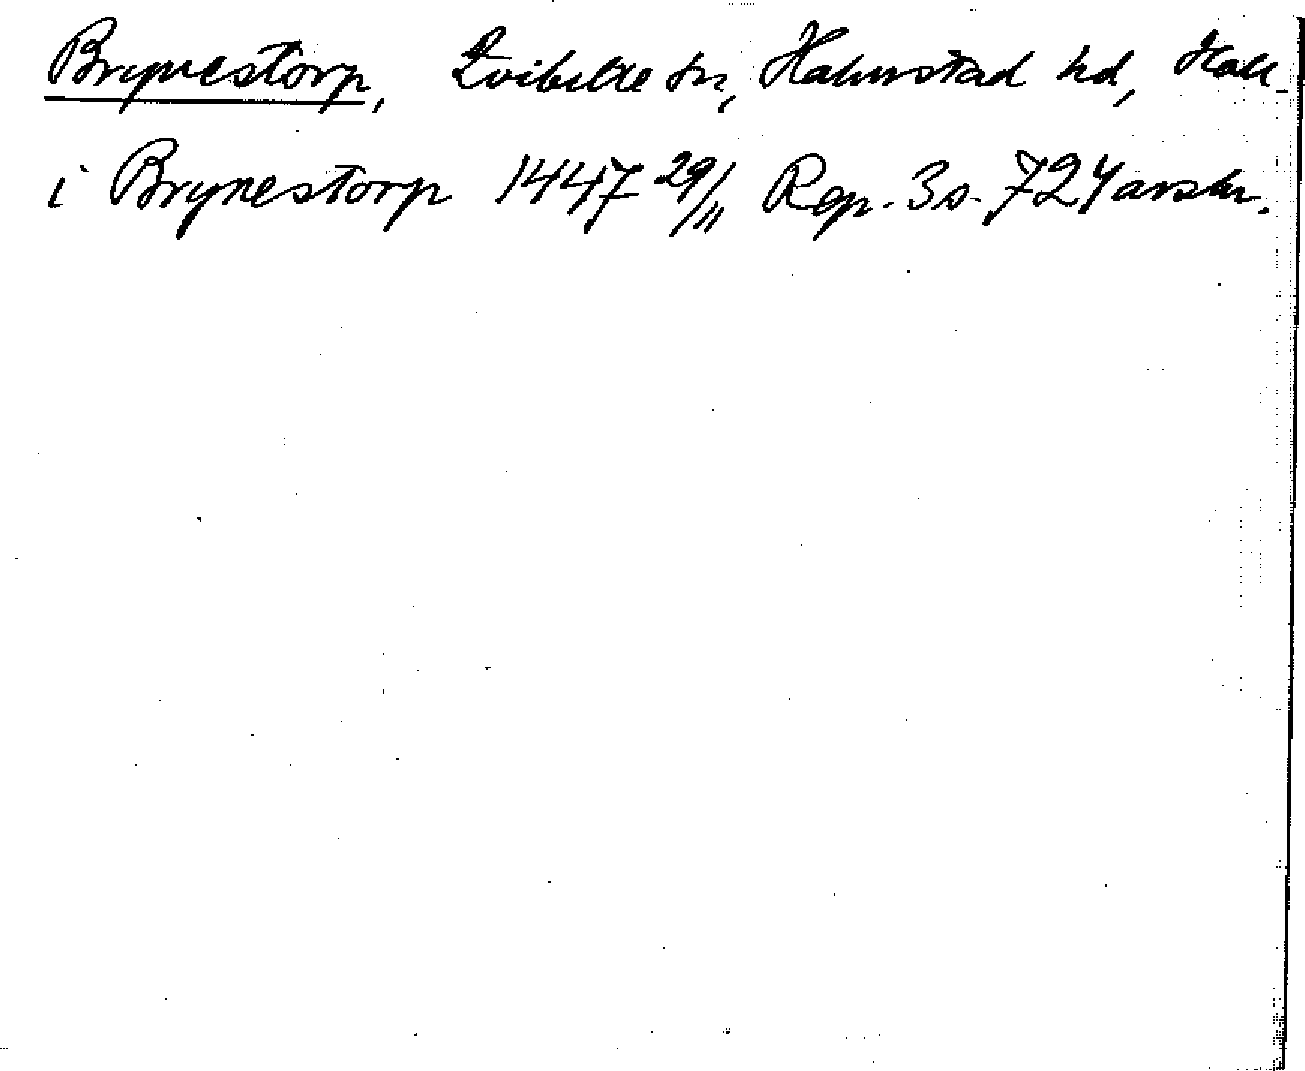 Brynestorp, Kvibille sn, Halmstad hd, Hall
i Brynestorp 1447 29/11 Rep. 3 s. 724 avskr.